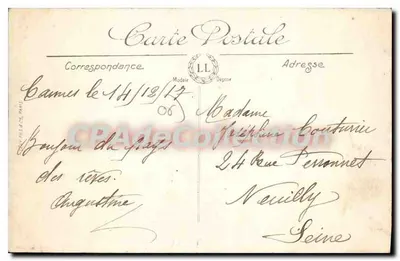 Carte Postale
Correspondance
Adresse
Modèle LL Déposé
Cannes le 14/12/17
06
Bonjour du pays
des rêves.
Augustine
Madame
Couturier
24 Rue Perronnet
Neuilly
Seine